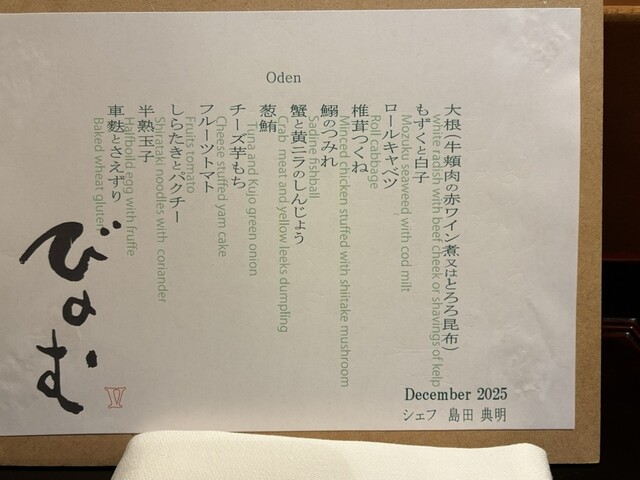 Oden
大根（牛頬肉の赤ワイン煮又はとろろ昆布）
white radish with beef cheek or shavings of kelp
もずくと白子
Mozuku seaweed with cod milt
ロールキャベツ
Roll cabbage
椎茸つくね
Minced chicken stuffed with shiitake mushroom
鰯のつみれ
Sadine fishball
蟹と黄ニラのしんじょう
Crab meat and yellow leeks dumpling
葱鮪
Tuna and Kujo green onion
チーズ芋もち
Cheese stuffed yam cake
フルーツトマト
Fruits tomato
しらたきとパクチー
Shirataki noodles with coriander
半熟玉子
Halfboild egg with fruffe
車麩とさえずり
Baked wheat gluten
びのむ
December 2025
シェフ 島田 典明